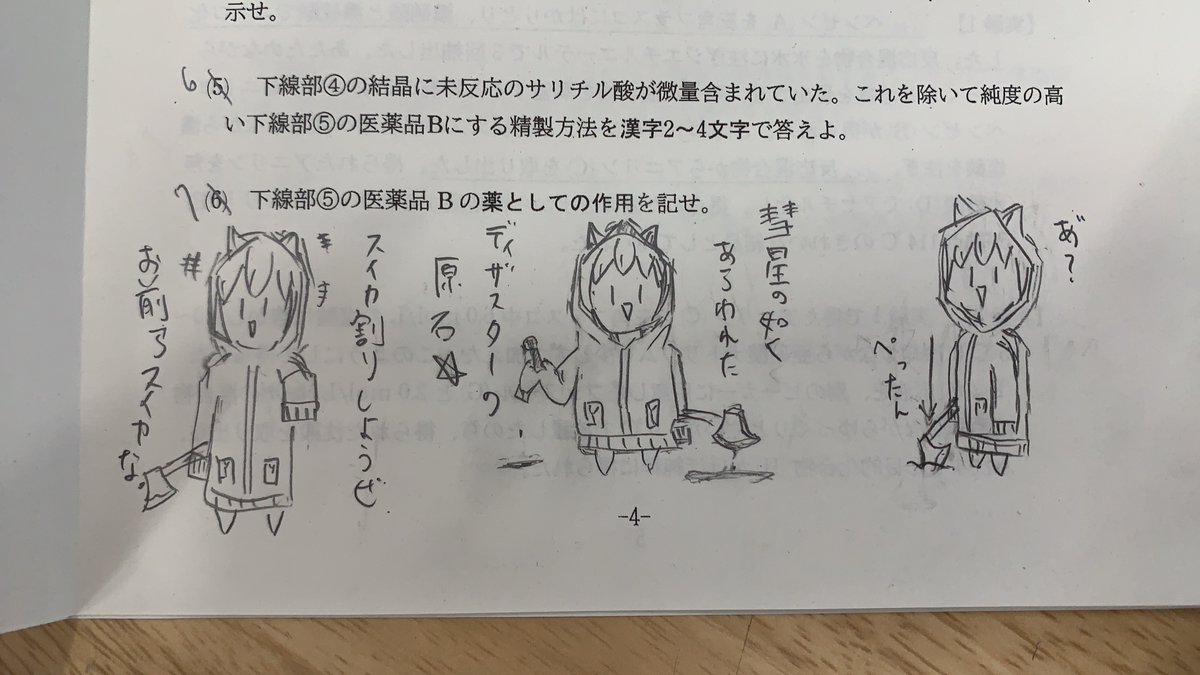 示せ。
6 (5) 下線部④の結晶に未反応のサリチル酸が微量含まれていた。これを除いて純度の高
い下線部⑤の医薬品Bにする精製方法を漢字2～4文字で答えよ。
7 (6) 下線部⑤の医薬品 B の薬としての作用を記せ。
あ゛?
ぺったん
彗星の如く
あらわれた
ディザスターの
原石☆
スイカ割りしようぜ
お前スイカな。
-4-